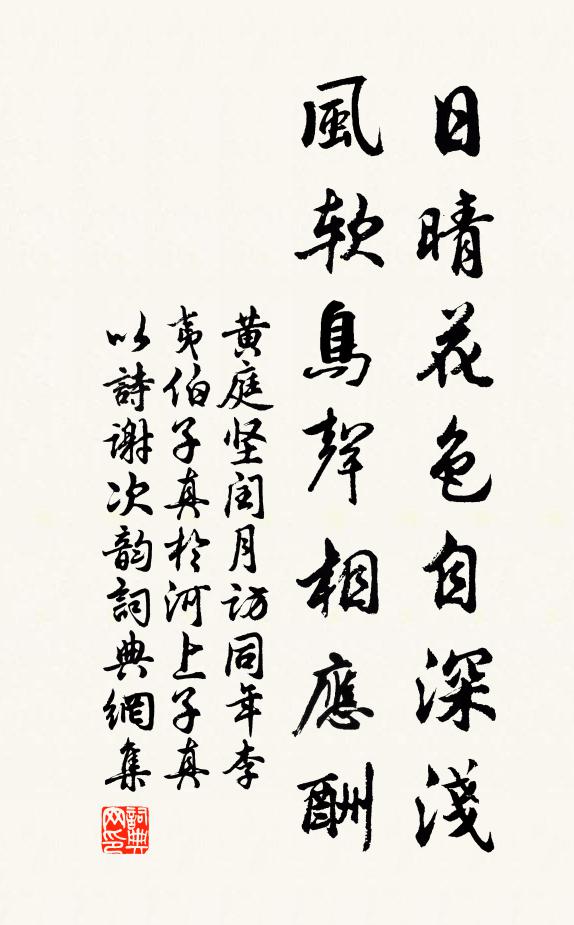 日晴花色自深淺
風软鳥聲相應酬
黄庭坚闰月訪同年李
夷伯子真於河上子真
以詩谢次韵詞典網集
詞典
网印